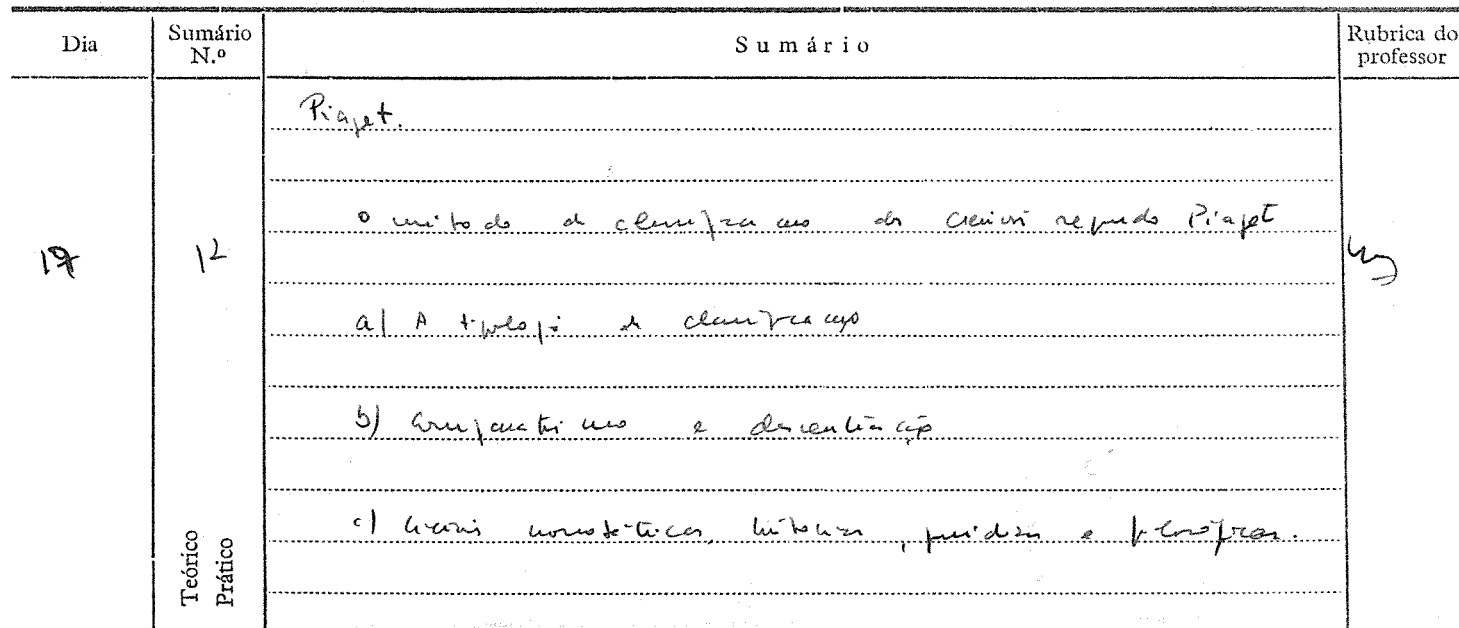 Dia
Sumário N.º
Sumário
Rubrica do professor
Piaget.
O método de classificação das ciências segundo Piaget
12
a) A tipologia e classificação
b) Comparativismo e descentração
c) Ciências nomotéticas, históricas, jurídicas e filosóficas.
Teórico
Prático